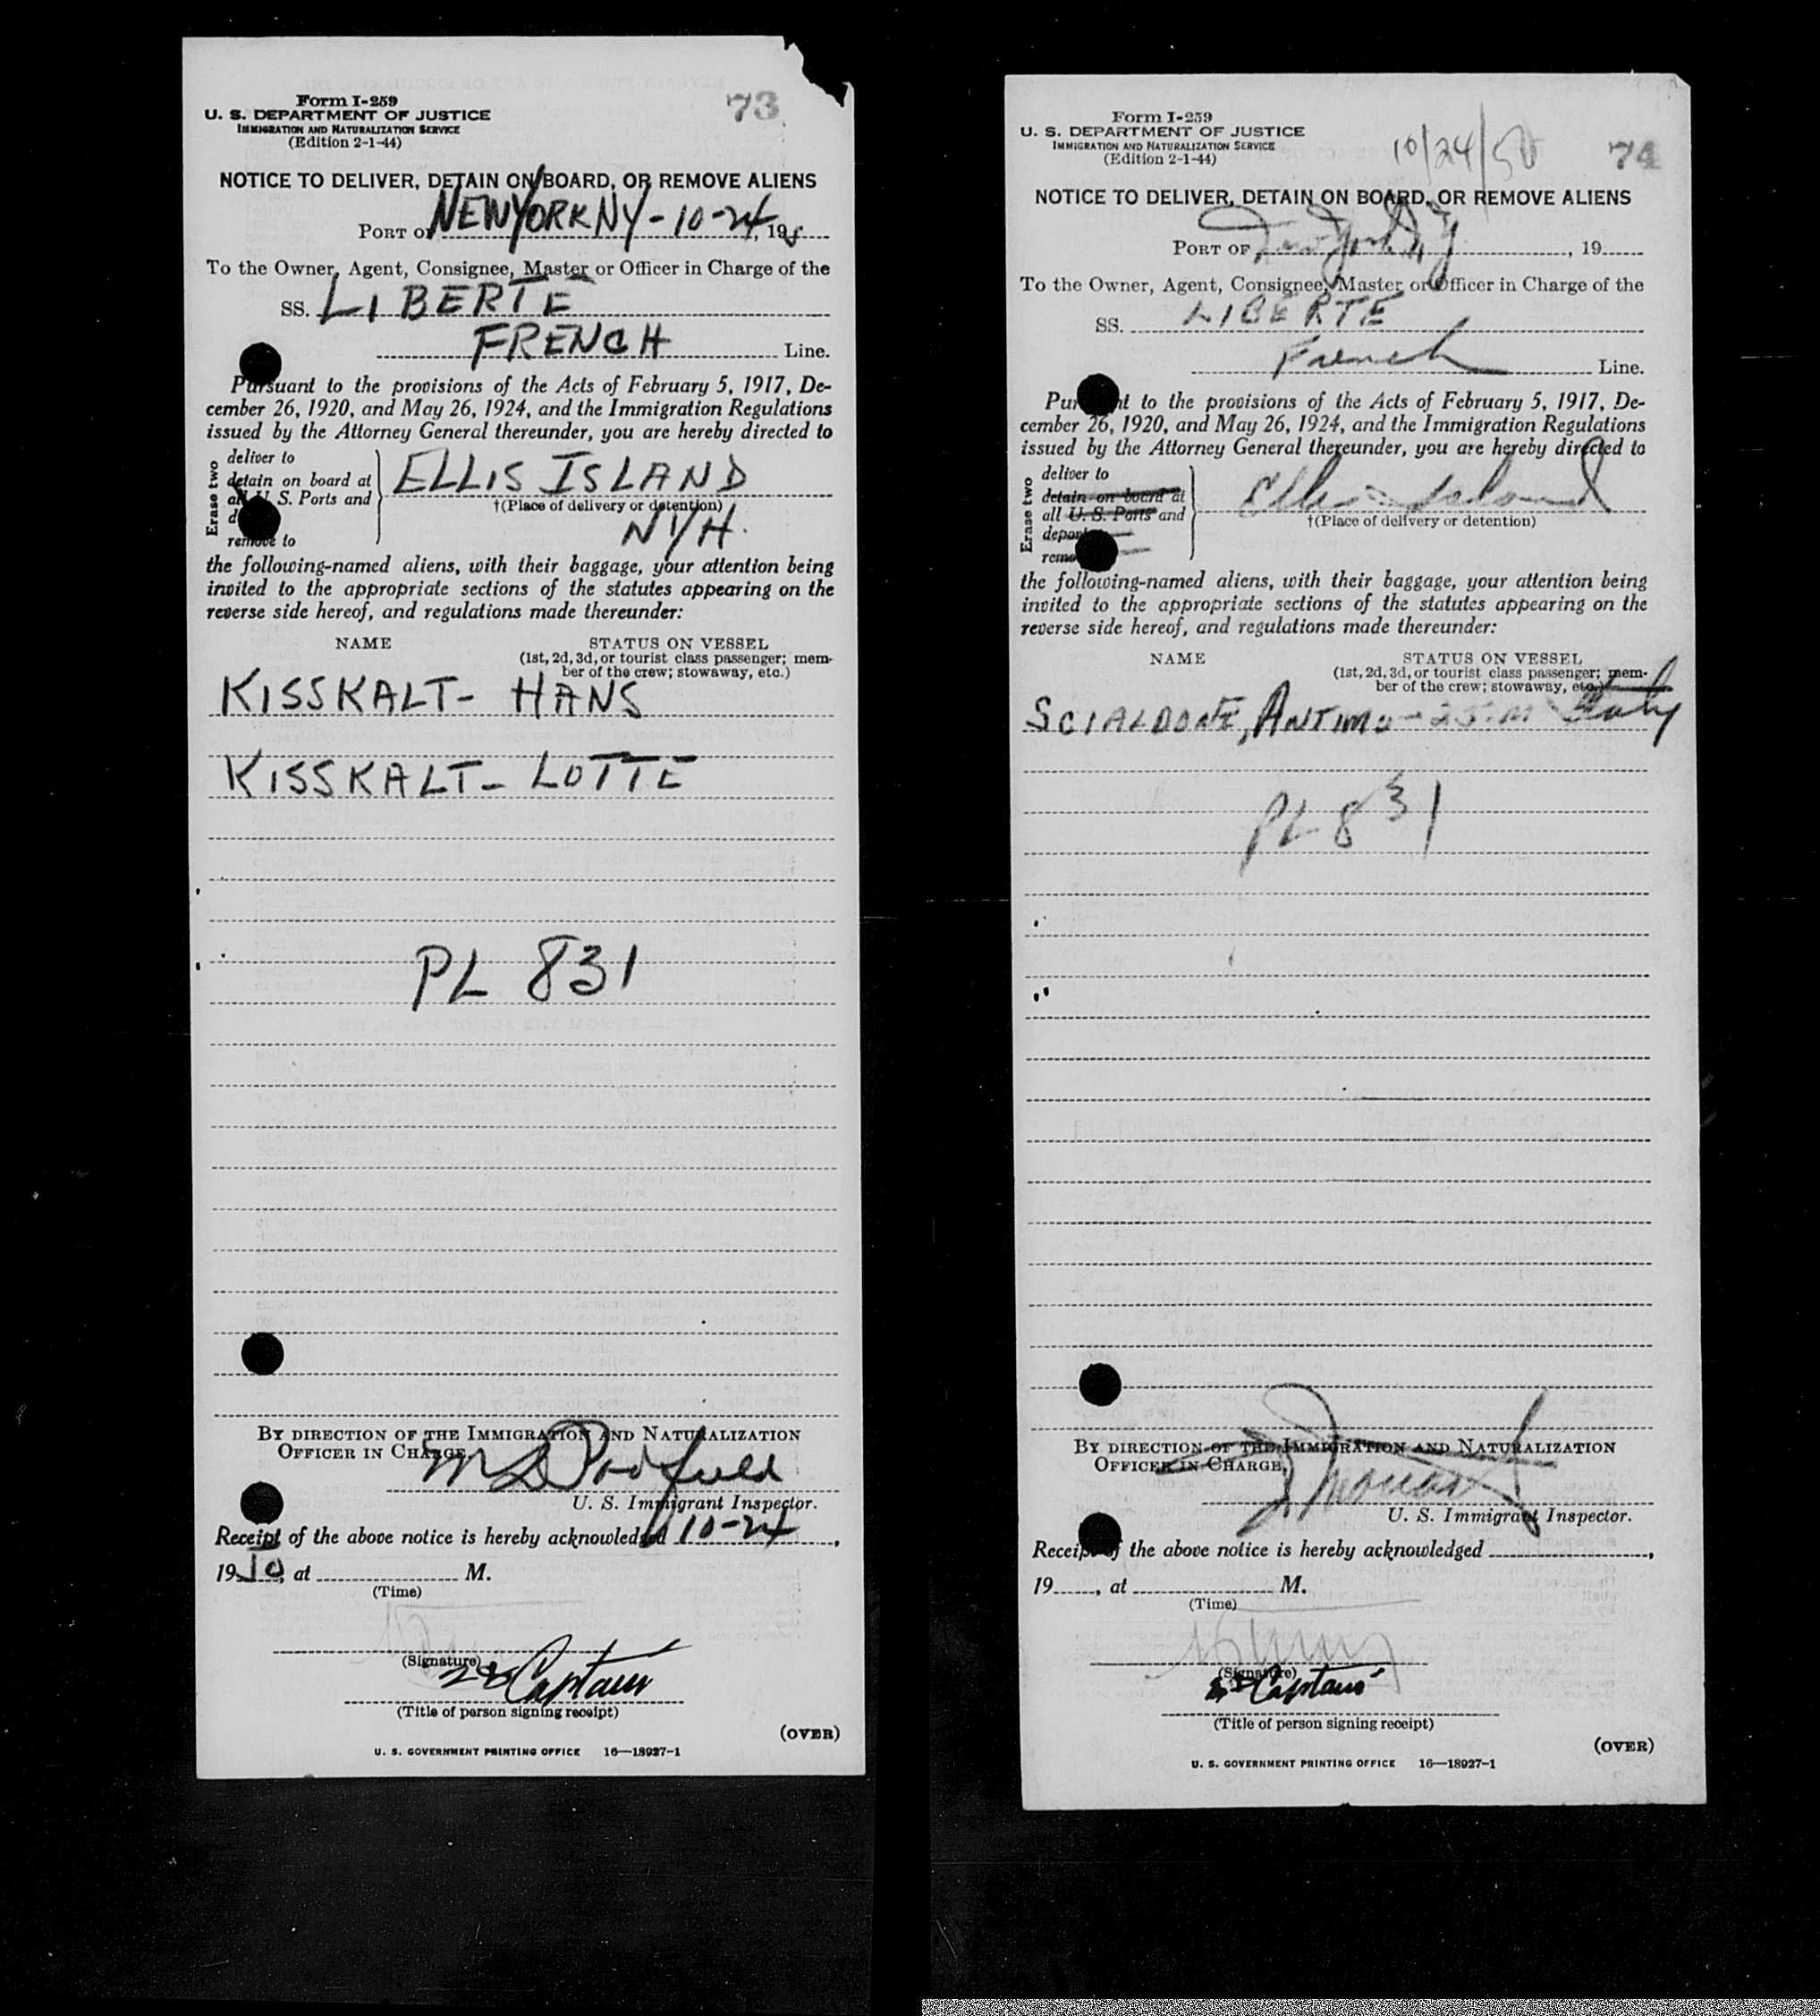 Form I-259
73
U. S. DEPARTMENT OF JUSTICE
IMMIGRATION AND NATURALIZATION SERVICE
(Edition 2-1-44)
NOTICE TO DELIVER, DETAIN ON BOARD, OR REMOVE ALIENS
PORT OF NEW YORK NY - 10-24, 19
To the Owner, Agent, Consignee, Master or Officer in Charge of the
SS. LIBERTE
FRENCH Line.
Pursuant to the provisions of the Acts of February 5, 1917, De-
cember 26, 1920, and May 26, 1924, and the Immigration Regulations
issued by the Attorney General thereunder, you are hereby directed to
Erase two
deliver to
detain on board at
all U. S. Ports and
remove to
ELLIS ISLAND
†(Place of delivery or detention)
NYH.
the following-named aliens, with their baggage, your attention being
invited to the appropriate sections of the statutes appearing on the
reverse side hereof, and regulations made thereunder:
NAME STATUS ON VESSEL
(1st, 2d, 3d, or tourist class passenger; mem-
ber of the crew; stowaway, etc.)
KISSKALT - HANS
KISSKALT - LOTTE
PL 831
BY DIRECTION OF THE IMMIGRATION AND NATURALIZATION
OFFICER IN CHARGE
U. S. Immigrant Inspector.
Receipt of the above notice is hereby acknowledged 10-24,
19 50, at M.
(Time)
(Signature)
Captain
(Title of person signing receipt)
(OVER)
U. S. GOVERNMENT PRINTING OFFICE 16—18927-1
Form I-259
U. S. DEPARTMENT OF JUSTICE
IMMIGRATION AND NATURALIZATION SERVICE
(Edition 2-1-44)
10/24/50
74
NOTICE TO DELIVER, DETAIN ON BOARD, OR REMOVE ALIENS
PORT OF New York NY, 19
To the Owner, Agent, Consignee, Master or Officer in Charge of the
SS. LIBERTE
French Line.
Pursuant to the provisions of the Acts of February 5, 1917, De-
cember 26, 1920, and May 26, 1924, and the Immigration Regulations
issued by the Attorney General thereunder, you are hereby directed to
Erase two
deliver to
detain on board at
all U. S. Ports and
Ellis Island
†(Place of delivery or detention)
the following-named aliens, with their baggage, your attention being
invited to the appropriate sections of the statutes appearing on the
reverse side hereof, and regulations made thereunder:
NAME STATUS ON VESSEL
(1st, 2d, 3d, or tourist class passenger; mem-
ber of the crew; stowaway, etc.)
SCIALDONE, ANTIMO - 25 - M Italy
PL 831
BY DIRECTION OF THE IMMIGRATION AND NATURALIZATION
OFFICER IN CHARGE,
U. S. Immigrant Inspector.
Receipt of the above notice is hereby acknowledged ,
19 , at M.
(Time)
(Signature)
Captain
(Title of person signing receipt)
(OVER)
U. S. GOVERNMENT PRINTING OFFICE 16—18927-1